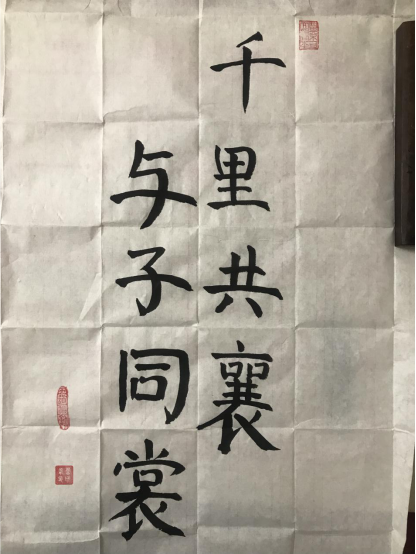 千里共襄
与子同裳